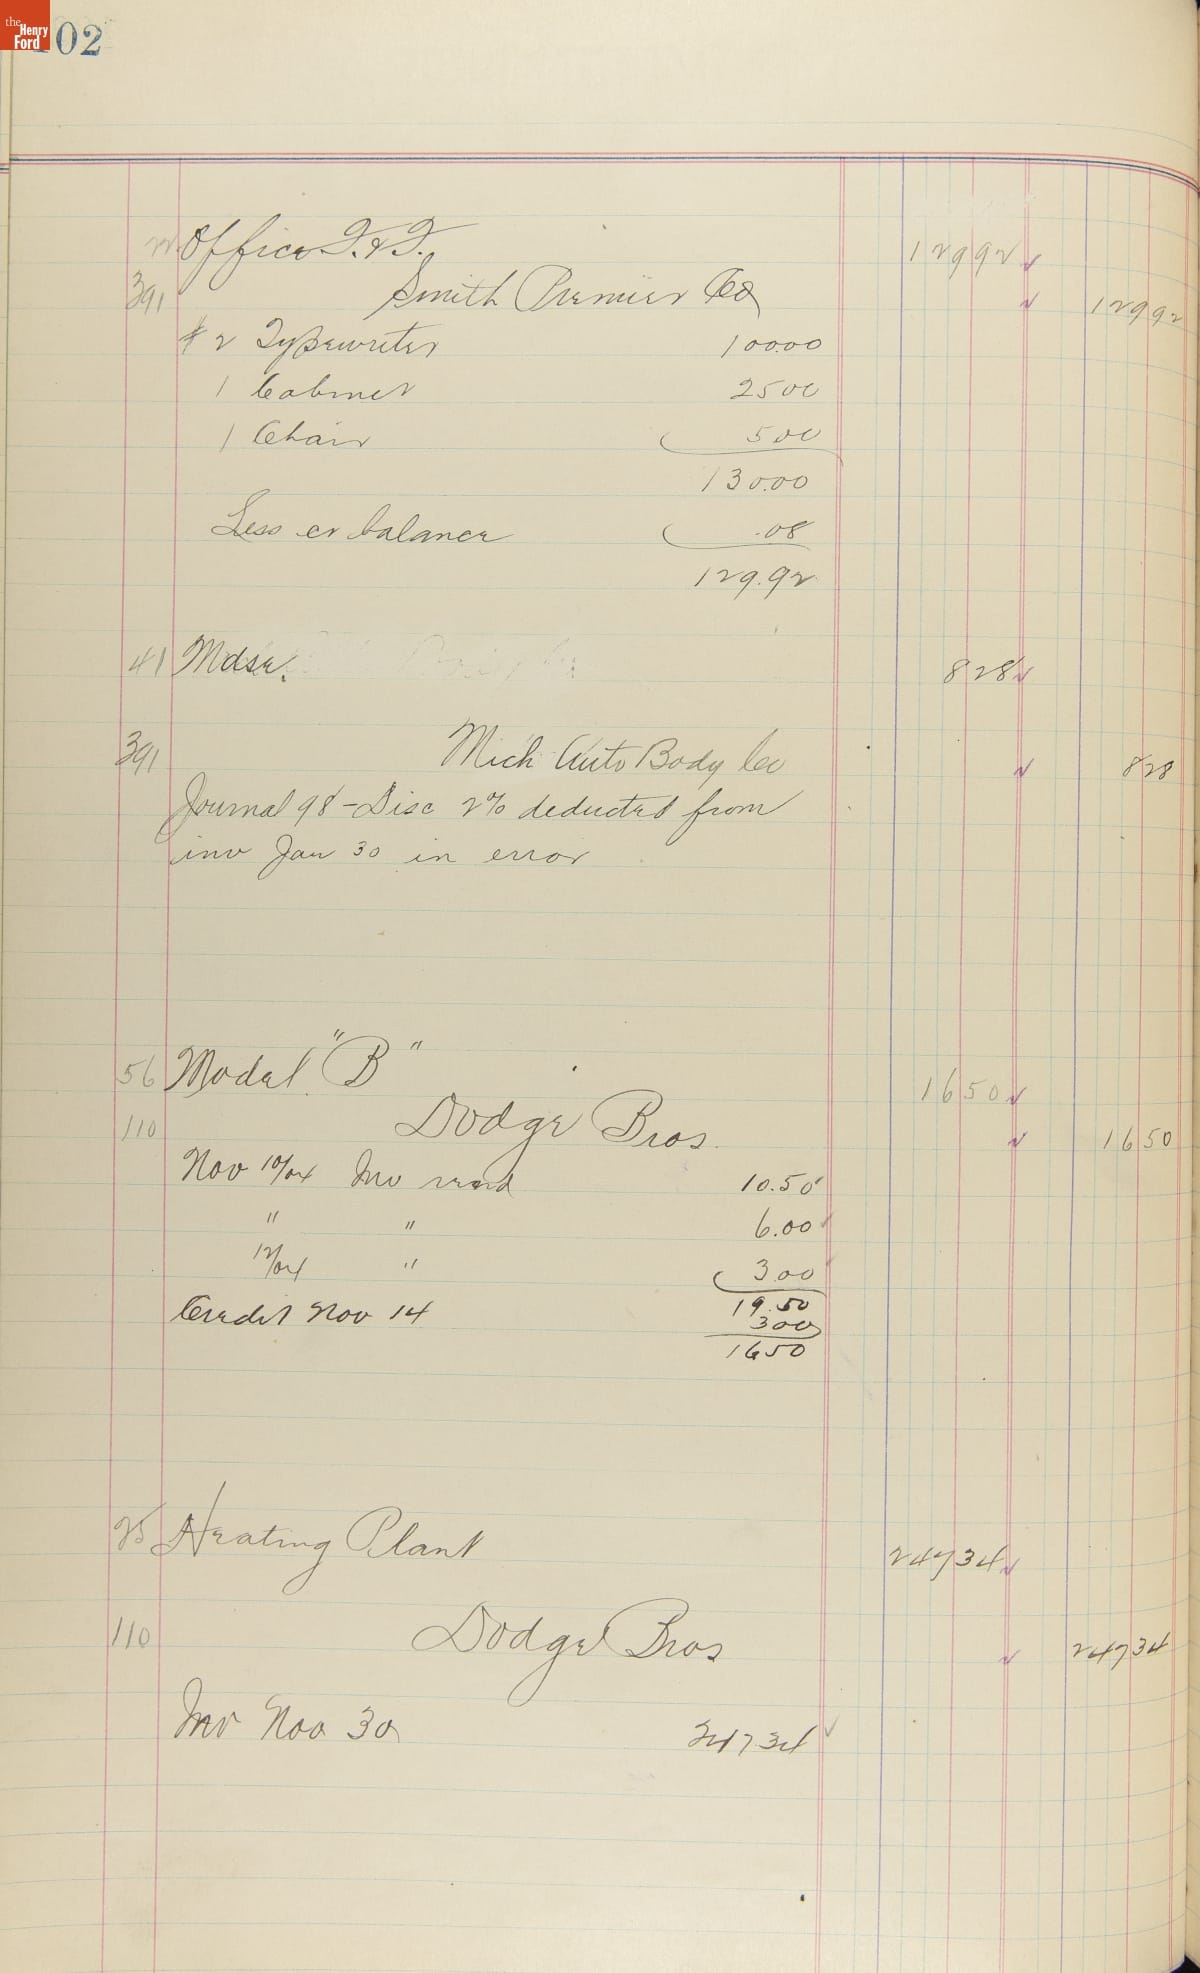 the Henry Ford
02
Office F. & F. 129 92
391 Smith Premier Co 129 92
#2 Typewriter 100.00
1 Cabinet 25 00
1 Chair 5 00
130.00
Less cr balance .08
129.92
41 Mdse. 8 28
391 Mich Auto Body Co 8 28
Journal 98 - Disc 2% deducted from
inv Jan 30 in error
56 Model "B" 16 50
110 Dodge Bros. 16 50
Nov 10/04 Inv rend 10.50
" " 6.00
12/04 " 3 00
19.50
Credit Nov 14 3 00
16 50
25 Heating Plant 247 34
110 Dodge Bros 247 34
Inv Nov 30 247 34